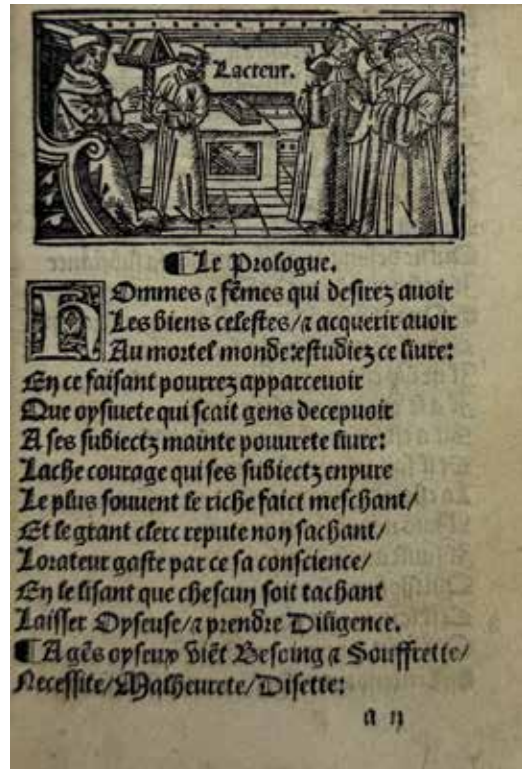 Lacteur.
¶ Le Prologue.
HOmmes ⁊ fẽmes qui desirez auoir
Les biens celestes/⁊ acquerir auoir
Au mortel monde:estudiez ce liure:
En ce faisant pourrez apparceuoir
Que oysiuete qui scait gens decepuoir
A ses subiectz mainte pouurete liure:
Lache courage qui ses subiectz enyure
Le plus souuent le riche faict meschant/
Et le grant clerc repute non sachant/
Lorateur gaste par ce sa conscience/
En le lisant que chescun soit tachant
Laisser Oyseuse/⁊ prendre Diligence.
¶ A gẽs oyseux viẽt Besoing ⁊ Souffrette/
Necessite/Malheurete/Disette:
a ij